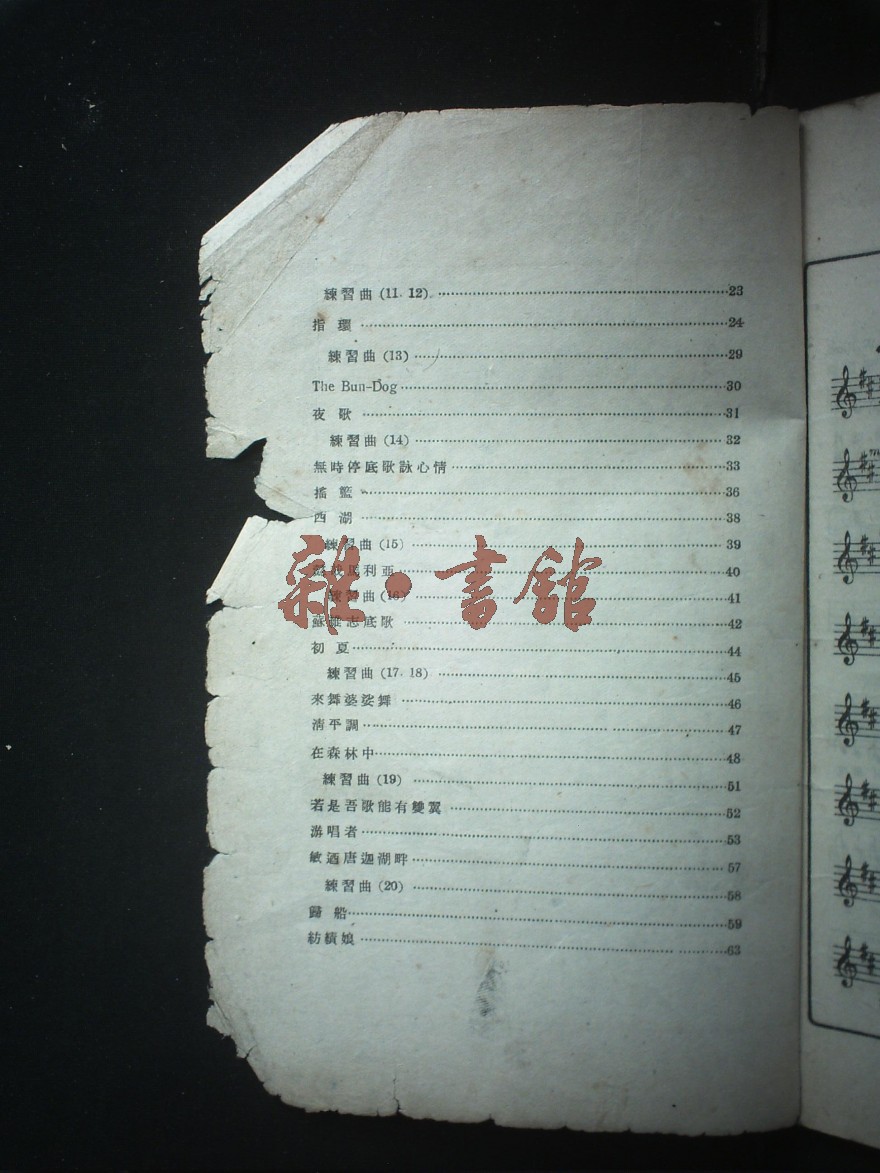 練習曲 (11. 12) ……23
指環 ……24
練習曲 (13) ……29
The Bun-Dog ……30
夜歌 ……31
練習曲 (14) ……32
無時停底歌詠心情 ……33
搖籃 ……36
西湖 ……38
練習曲 (15) ……39
馬利亞 ……40
練習曲 (16) ……41
底歌 ……42
初夏 ……44
練習曲 (17. 18) ……45
來舞婆娑舞 ……46
清平調 ……47
在森林中 ……48
練習曲 (19) ……51
若是吾歌能有雙翼 ……52
游唱者 ……53
敏酒唐迦湖畔 ……57
練習曲 (20) ……58
歸船 ……59
紡績娘 ……63
雜·書館